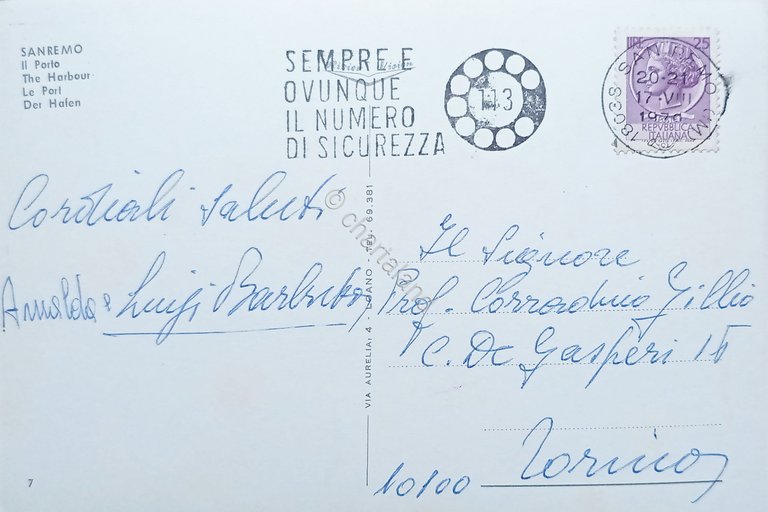 SANREMO
Il Porto
The Harbour
Le Port
Der Hafen
SEMPRE E
OVUNQUE
IL NUMERO
DI SICUREZZA
113
LIRE 25
18038 SAN REMO (IM)
20-21
17 VIII
REPVBBLICA
ITALIANA
Cordiali saluti
Arnalda e Luigi
Il Signore
Prof. Corradino Gillio
C. De Gasperi 15
10100 Torino
VIA AURELIA; 4 TEL. 69.381
© charta
7